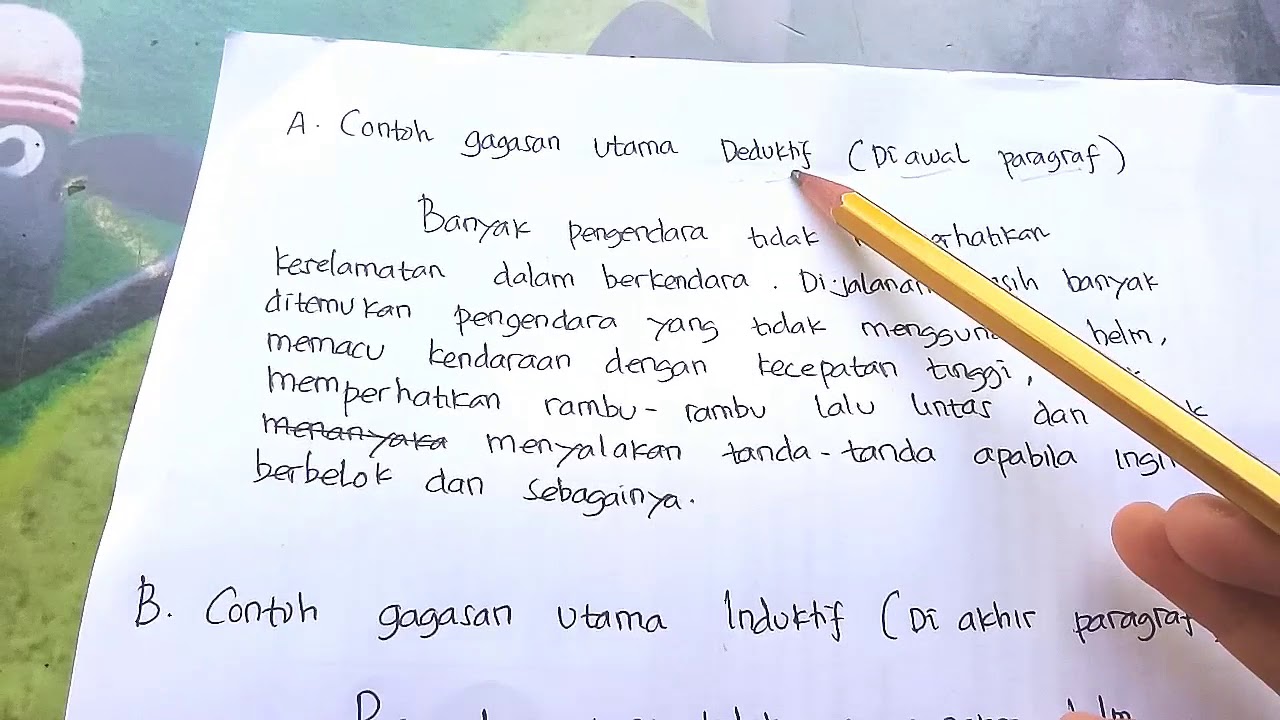 A. Contoh gagasan utama Deduktif (Di awal paragraf)
Banyak pengendara tidak
keselamatan dalam berkendara. Dijalanan banyak
ditemukan pengendara yang tidak helm,
memacu kendaraan dengan kecepatan tinggi,
memperhatikan rambu-rambu lalu lintas dan
menyalakan tanda-tanda apabila
berbelok dan sebagainya.
B. Contoh gagasan utama Induktif (Di akhir paragraf